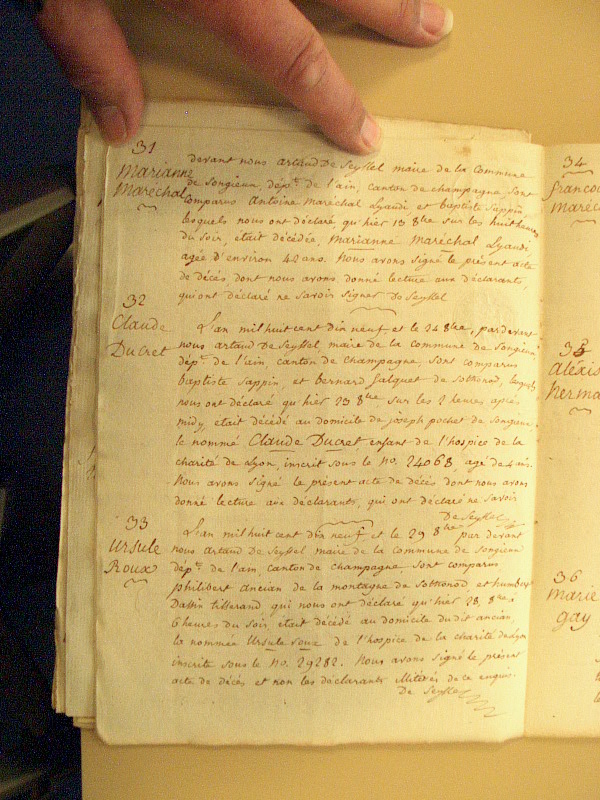 31
Marianne
Maréchal
devant nous artaud De Seyssel maire de la commune
de Songieux, dép.t de l'ain, canton de champagne, sont
comparus Antoine Maréchal Lyaudi et baptiste Sappin
lesquels nous ont déclaré qu'hier 13 8bre sur les huit heures
du soir, etait décédée, Marianne Maréchal Lyaudi
agée d'environ 42 ans. Nous avons signé le présent acte
de décès, dont nous avons donné lecture aux déclarants,
qui ont déclaré ne savoir signer De Seyssel
32
Claude
Ducret
L'an mil huit cent dix neuf et le 24 8bre, par devant
nous artaud De Seyssel maire de la commune de Songieux
dép.t de l'ain, canton de champagne, sont comparus
baptiste Sappin, et bernard Jalquet de Sothonod, lesquels
nous ont déclaré qu'hier 23 8bre sur les 2 heures après
midy, etait décédé au domicile de joseph pochet de Songieux
le nommé Claude Ducret, enfant de l'hospice de la
charité de Lyon, inscrit sous le No. 24068, agé de 4 ans.
Nous avons signé le présent acte de décès dont nous avons
donné lecture aux déclarants, qui ont déclaré ne savoir
De Seyssel
33
Ursule
Roux
L'an mil huit cent dix neuf et le 29 8bre par devant
nous artaud De Seyssel maire de la commune de Songieux
dép.t de l'ain, canton de champagne, sont comparus
philibert ancian de la montagne de Sothonod et humbert
Dassin tisserand qui nous ont déclaré qu'hier 28 8bre à
6 heures du soir etait décédé au domicile du dit ancian
la nommée Ursule roux de l'hospice de la charité de Lyon
inscrite sous le No. 29282. Nous avons signé le présent
acte de décès et non les déclarants illitérés de ce enquis.
De Seyssel
34
françoi
Maréc
35
aléxis
herma
36
Marie
gay